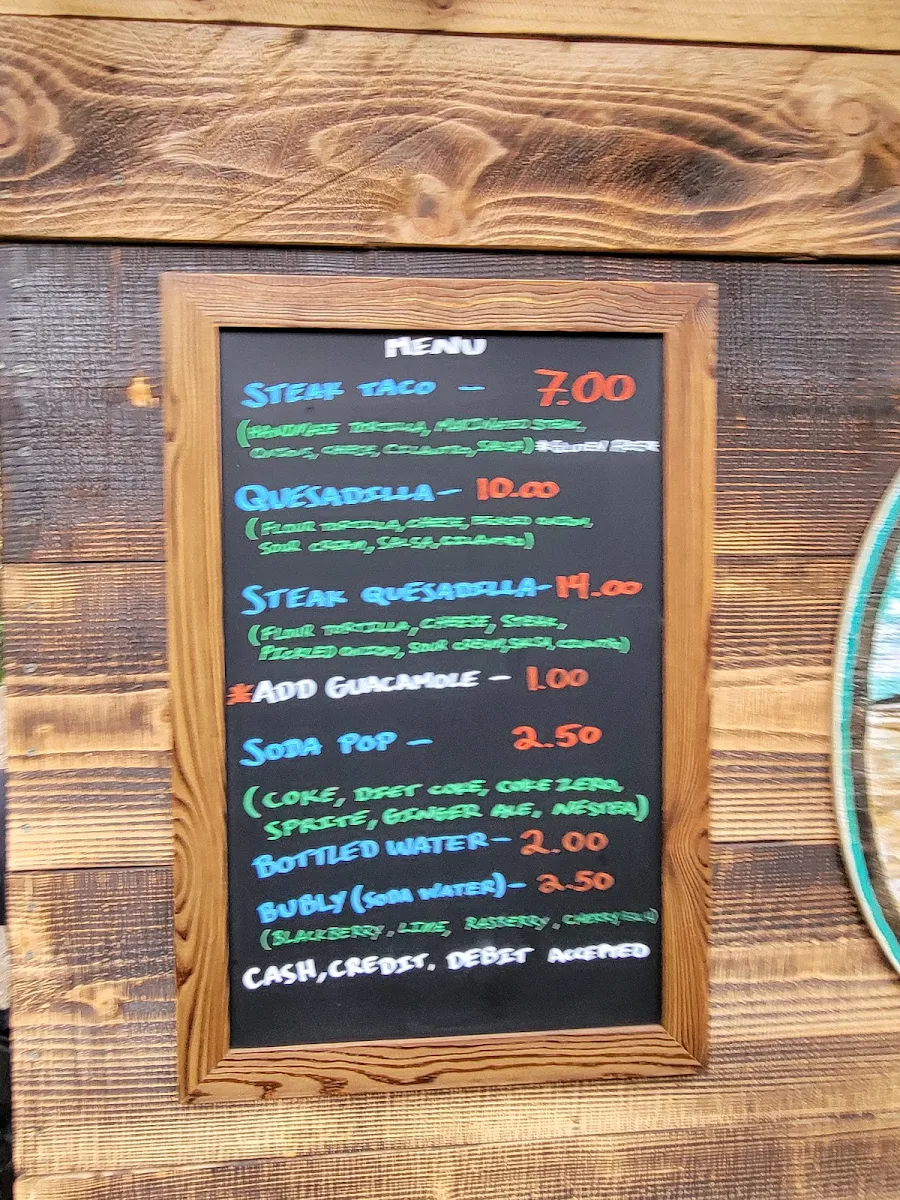 MENU
STEAK TACO - 7.00
(HANDMADE TORTILLA, MARINATED STEAK,
ONION, CHEESE, CILANTRO, SALSA)
QUESADILLA - 10.00
(FLOUR TORTILLA, CHEESE, PICKLED ONION,
SOUR CREAM, SALSA, CILANTRO)
STEAK QUESADILLA - 14.00
(FLOUR TORTILLA, CHEESE, STEAK,
PICKLED ONION, SOUR CREAM, SALSA, CILANTRO)
*ADD GUACAMOLE - 1.00
SODA POP - 2.50
(COKE, DIET COKE, COKE ZERO,
SPRITE, GINGER ALE, NESTEA)
BOTTLED WATER - 2.00
BUBLY (SODA WATER) - 2.50
(BLACKBERRY, LIME, RASBERRY, CHERRY
CASH, CREDIT, DEBIT ACCEPTED